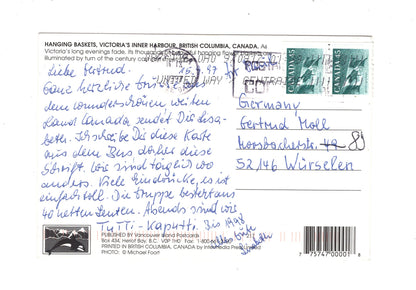 HANGING BASKETS, VICTORIA'S INNER HARBOUR, BRITISH COLUMBIA, CANADA, As
Victoria's long evenings fade, its thousands of beautiful hanging flower
illuminated by turn of the century
CANADA 45
CANADA 45
UNITED WAY
CENTRAID
Liebe Gertrud.
Ganz herzliche Grüße aus
dem wunderschönen weiten
Land Canada sendet Dir Elisa-
beter. Ich schreibe Dir diese Karte
aus dem Bus daher diese
Schrift. Wir sind täglich wo
anders. Viele Eindrücke, es ist
einfach toll. Die Gruppe besteht aus
40 netten Leuten. Abends sind wir
Tutti-Kaputti. Bis 1998
Alles Liebe
Germany
Gertrud Moll
Morsbacherstr. 42 80
52146 Würselen
PUBLISHED BY Vancouver Island Postcards
Box 434, Heriot Bay, B.C. V0P 1H0
PRINTED IN BRITISH COLUMBIA, CANADA by
PHOTO: © Michael Foort
7 75747 00001 8